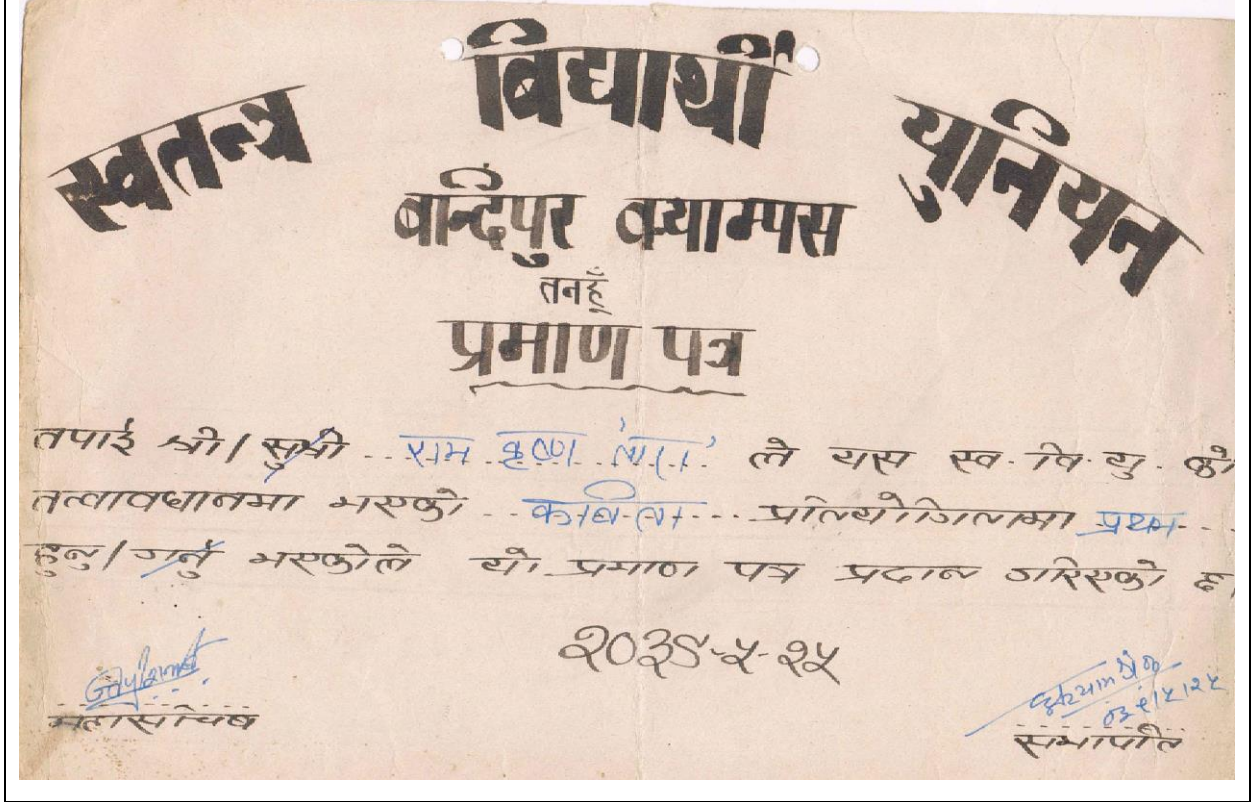 स्वतन्त्र बिद्यार्थी युनियन
बन्दिपुर क्याम्पस
तनहूँ
प्रमाण पत्र
तपाई श्री/सुश्री ..राम कृष्ण .. लै यस स्व. वि. यु. को
तत्वावधानमा भएको ..कबिता.... प्रतियोगितामा प्रथम...
हुनु/गर्नु भएकोले यो प्रमाण पत्र प्रदान गरिएको छ।
२०३९-५-२५
०३९।५।२५
महासचिव
सभापति